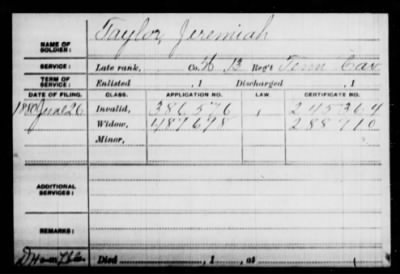 Taylor, Jeremiah
NAME OF SOLDIER:
SERVICE: Late rank, Co. H 13 Reg't Tenn Cav
TERM OF SERVICE: Enlisted , 1 Discharged , 1
DATE OF FILING. CLASS. APPLICATION NO. LAW. CERTIFICATE NO.
1880 June 26 Invalid, 386576 245364
Widow, 487698 288910
Minor,
ADDITIONAL SERVICES:
REMARKS:
Died , 1 , at